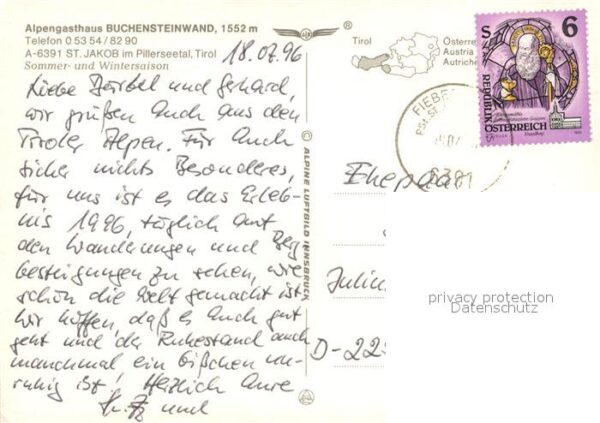 Alpengasthaus BUCHENSTEINWAND, 1552 m
Telefon 0 53 54 / 82 90
A-6391 ST. JAKOB im Pillerseetal, Tirol
Sommer- und Wintersaison
18.07.96
Liebe Bärbel und Gerhard,
wir grüßen Euch aus den
Tiroler Alpen. Für Euch
sicher nichts Besonderes,
für uns ist es das Erleb-
nis 1996, täglich auf
den Wanderungen und Berg
besteigungen zu sehen, wie
schön die Welt gemacht ist.
Wir hoffen, daß es Euch gut
geht und der Ruhestand auch
manchmal ein bißchen un-
ruhig ist! Herzlich Eure
und
© ALPINE LUFTBILD INNSBRUCK
Tirol
Österre
Austria
Autrich
FIEBE
6391
S 6
REPUBLIK
ÖSTERREICH
Ehepaar
Juliu
D-22
privacy protection
Datenschutz